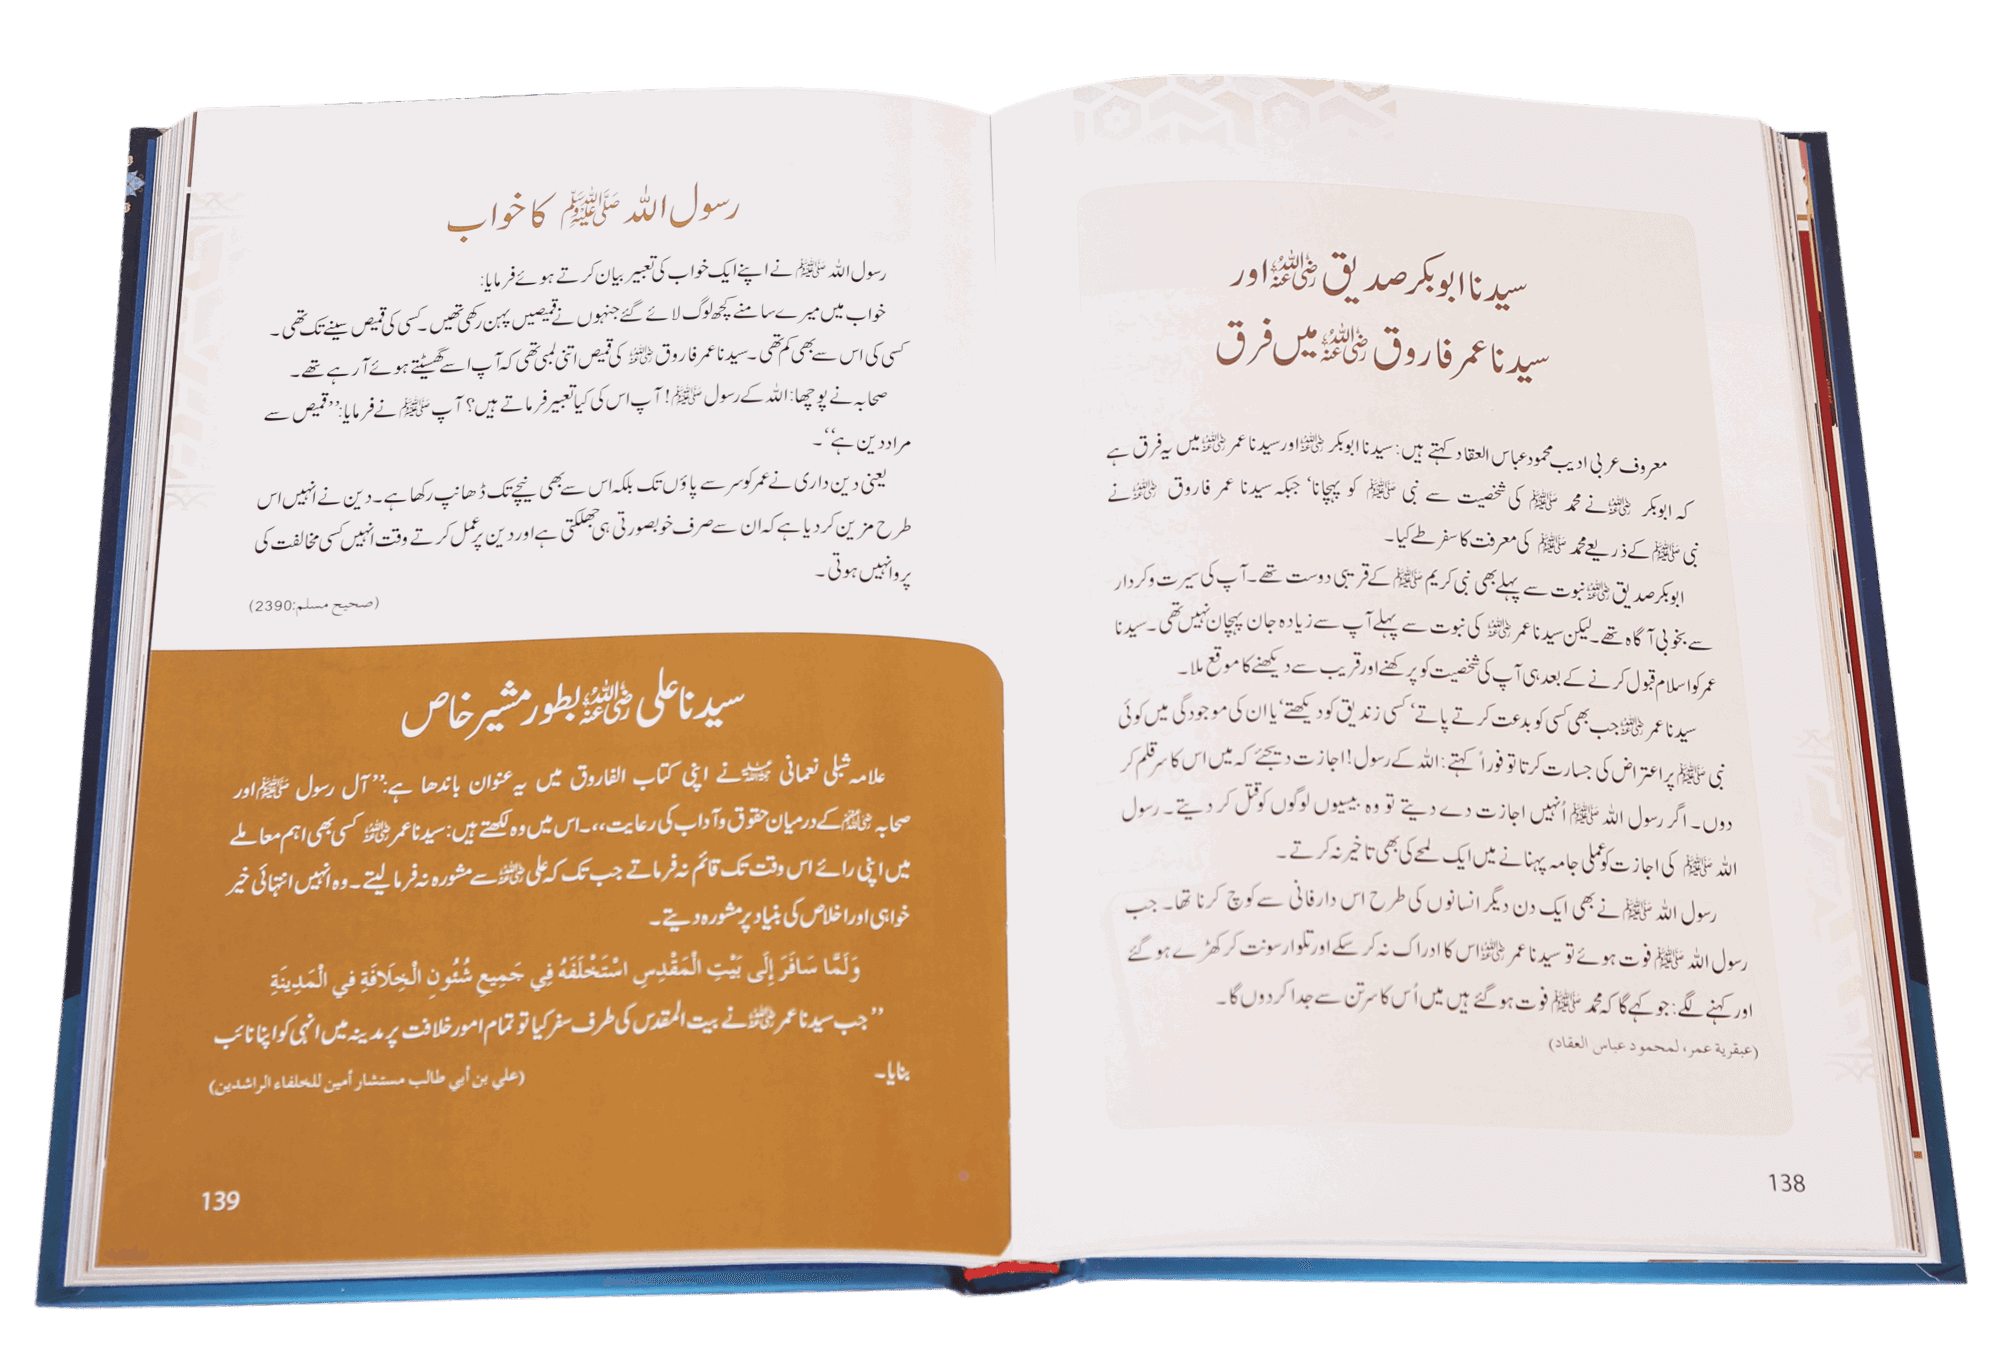 سیدنا ابوبکر صدیق رضی اللہ عنہ اور
سیدنا عمر فاروق رضی اللہ عنہ میں فرق
معروف عربی ادیب محمود عباس العقاد کہتے ہیں: سیدنا ابوبکر رضی اللہ عنہ اور سیدنا عمر رضی اللہ عنہ میں یہ فرق ہے
کہ ابوبکر رضی اللہ عنہ نے محمد ﷺ کی شخصیت سے نبی ﷺ کو پہچانا، جبکہ سیدنا عمر فاروق رضی اللہ عنہ نے
نبی ﷺ کے ذریعے محمد ﷺ کی معرفت کا سفر طے کیا۔
ابوبکر صدیق رضی اللہ عنہ نبوت سے پہلے بھی نبی کریم ﷺ کے قریبی دوست تھے۔ آپ کی سیرت و کردار
سے بخوبی آگاہ تھے۔ لیکن سیدنا عمر رضی اللہ عنہ کی نبوت سے پہلے آپ سے زیادہ جان پہچان نہیں تھی۔ سیدنا
عمر کو اسلام قبول کرنے کے بعد ہی آپ کی شخصیت کو پرکھنے اور قریب سے دیکھنے کا موقع ملا۔
سیدنا عمر رضی اللہ عنہ جب بھی کسی کو بدعت کرتے پاتے، کسی زندیق کو دیکھتے، یا ان کی موجودگی میں کوئی
نبی ﷺ پر اعتراض کی جسارت کرتا تو فوراً کہتے: اللہ کے رسول! اجازت دیجئے کہ میں اس کا سر قلم کر
دوں۔ اگر رسول اللہ ﷺ اُنہیں اجازت دے دیتے تو وہ بیسیوں لوگوں کو قتل کر دیتے۔ رسول
اللہ ﷺ کی اجازت کو عملی جامہ پہنانے میں ایک لمحے کی بھی تاخیر نہ کرتے۔
رسول اللہ ﷺ نے بھی ایک دن دیگر انسانوں کی طرح اس دار فانی سے کوچ کرنا تھا۔ جب
رسول اللہ ﷺ فوت ہوئے تو سیدنا عمر رضی اللہ عنہ اس کا ادراک نہ کر سکے اور تلوار سونت کر کھڑے ہو گئے
اور کہنے لگے: جو کہے گا کہ محمد ﷺ فوت ہو گئے ہیں میں اُس کا سر تن سے جدا کر دوں گا۔
(عبقرية عمر، لمحمود عباس العقاد)
138
رسول اللہ ﷺ کا خواب
رسول اللہ ﷺ نے اپنے ایک خواب کی تعبیر بیان کرتے ہوئے فرمایا:
خواب میں میرے سامنے کچھ لوگ لائے گئے جنہوں نے قمیصیں پہن رکھی تھیں۔ کسی کی قمیص سینے تک تھی۔
کسی کی اس سے بھی کم تھی۔ سیدنا عمر فاروق رضی اللہ عنہ کی قمیص اتنی لمبی تھی کہ آپ اسے گھسیٹتے ہوئے آ رہے تھے۔
صحابہ نے پوچھا: اللہ کے رسول ﷺ! آپ اس کی کیا تعبیر فرماتے ہیں؟ آپ ﷺ نے فرمایا: ”قمیص سے
مراد دین ہے“۔
یعنی دین داری نے عمر کو سر سے پاؤں تک بلکہ اس سے بھی نیچے تک ڈھانپ رکھا ہے۔ دین نے انہیں اس
طرح مزین کر دیا ہے کہ ان سے صرف خوبصورتی ہی جھلکتی ہے اور دین پر عمل کرتے وقت انہیں کسی مخالفت کی
پروا نہیں ہوتی۔
(صحيح مسلم:2390)
سیدنا علی رضی اللہ عنہ بطور مشیر خاص
علامہ شبلی نعمانی رحمہ اللہ نے اپنی کتاب الفاروق میں یہ عنوان باندھا ہے: ”آل رسول ﷺ اور
صحابہ رضی اللہ عنہم کے درمیان حقوق و آداب کی رعایت“۔ اس میں وہ لکھتے ہیں: سیدنا عمر رضی اللہ عنہ کسی بھی اہم معاملے
میں اپنی رائے اس وقت تک قائم نہ فرماتے جب تک کہ علی رضی اللہ عنہ سے مشورہ نہ فرما لیتے۔ وہ انہیں انتہائی خیر
خواہی اور اخلاص کی بنیاد پر مشورہ دیتے۔
وَلَمَّا سَافَرَ إِلَى بَيْتِ الْمَقْدِسِ اسْتَخْلَفَهُ فِي جَمِيعِ شُئُونِ الْخِلَافَةِ في الْمَدِينَةِ
”جب سیدنا عمر رضی اللہ عنہ نے بیت المقدس کی طرف سفر کیا تو تمام امور خلافت پر مدینہ میں انہی کو اپنا نائب
بنایا۔
(علي بن أبي طالب مستشار أمين للخلفاء الراشدين)
139